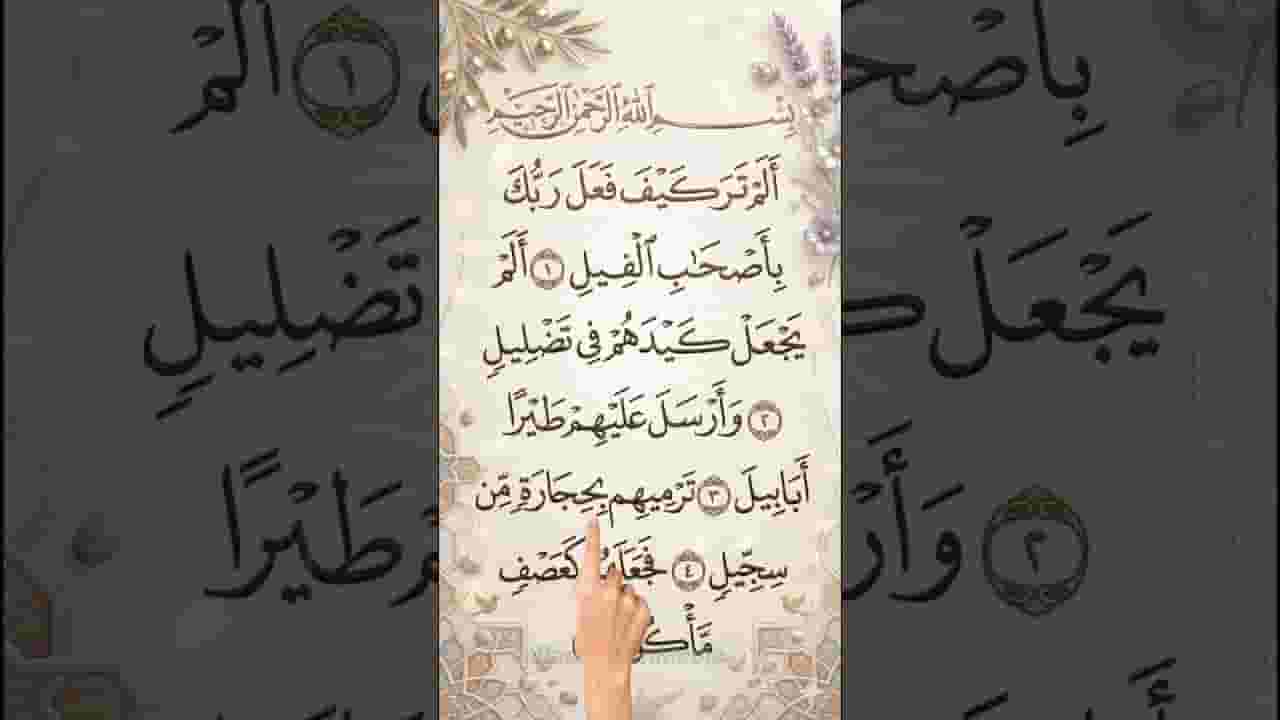 بِسْمِ ٱللَّهِ ٱلرَّحْمَٰنِ ٱلرَّحِيمِ
أَلَمْ تَرَ كَيْفَ فَعَلَ رَبُّكَ
بِأَصْحَٰبِ ٱلْفِيلِ ١ أَلَمْ
يَجْعَلْ كَيْدَهُمْ فِي تَضْلِيلٍ
٢ وَأَرْسَلَ عَلَيْهِمْ طَيْرًا
أَبَابِيلَ ٣ تَرْمِيهِم بِحِجَارَةٍ مِّن
سِجِّيلٍ ٤ كَعَصْفٍ